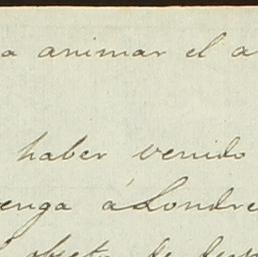 a animar el a
haber venido
enga á Londre
objeto de